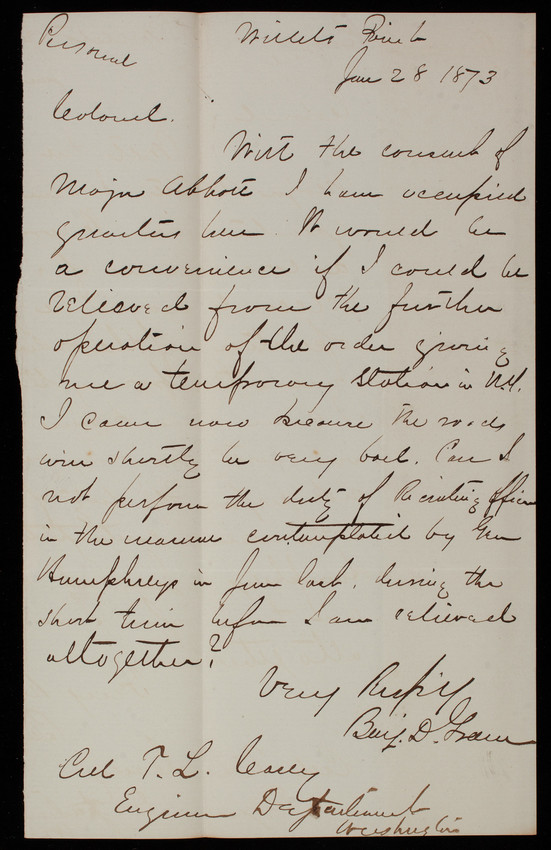 Personal
Willets Point
Jan 28 1873
Colonel.
With the consent of
Major Abbott I have occupied
quarters here. It would be
a convenience if I could be
relieved from the further
operation of the order giving
me a temporary station in N.Y.
I came now because the roads
will shortly be very bad. Can I
not perform the duty of Recruiting Officer
in the manner contemplated by Gen
Humphreys in June last, during the
short time before I am relieved
altogether?
Very Respy
Benj. D. Greene
Col T. L. Casey
Engineer Department
Washington